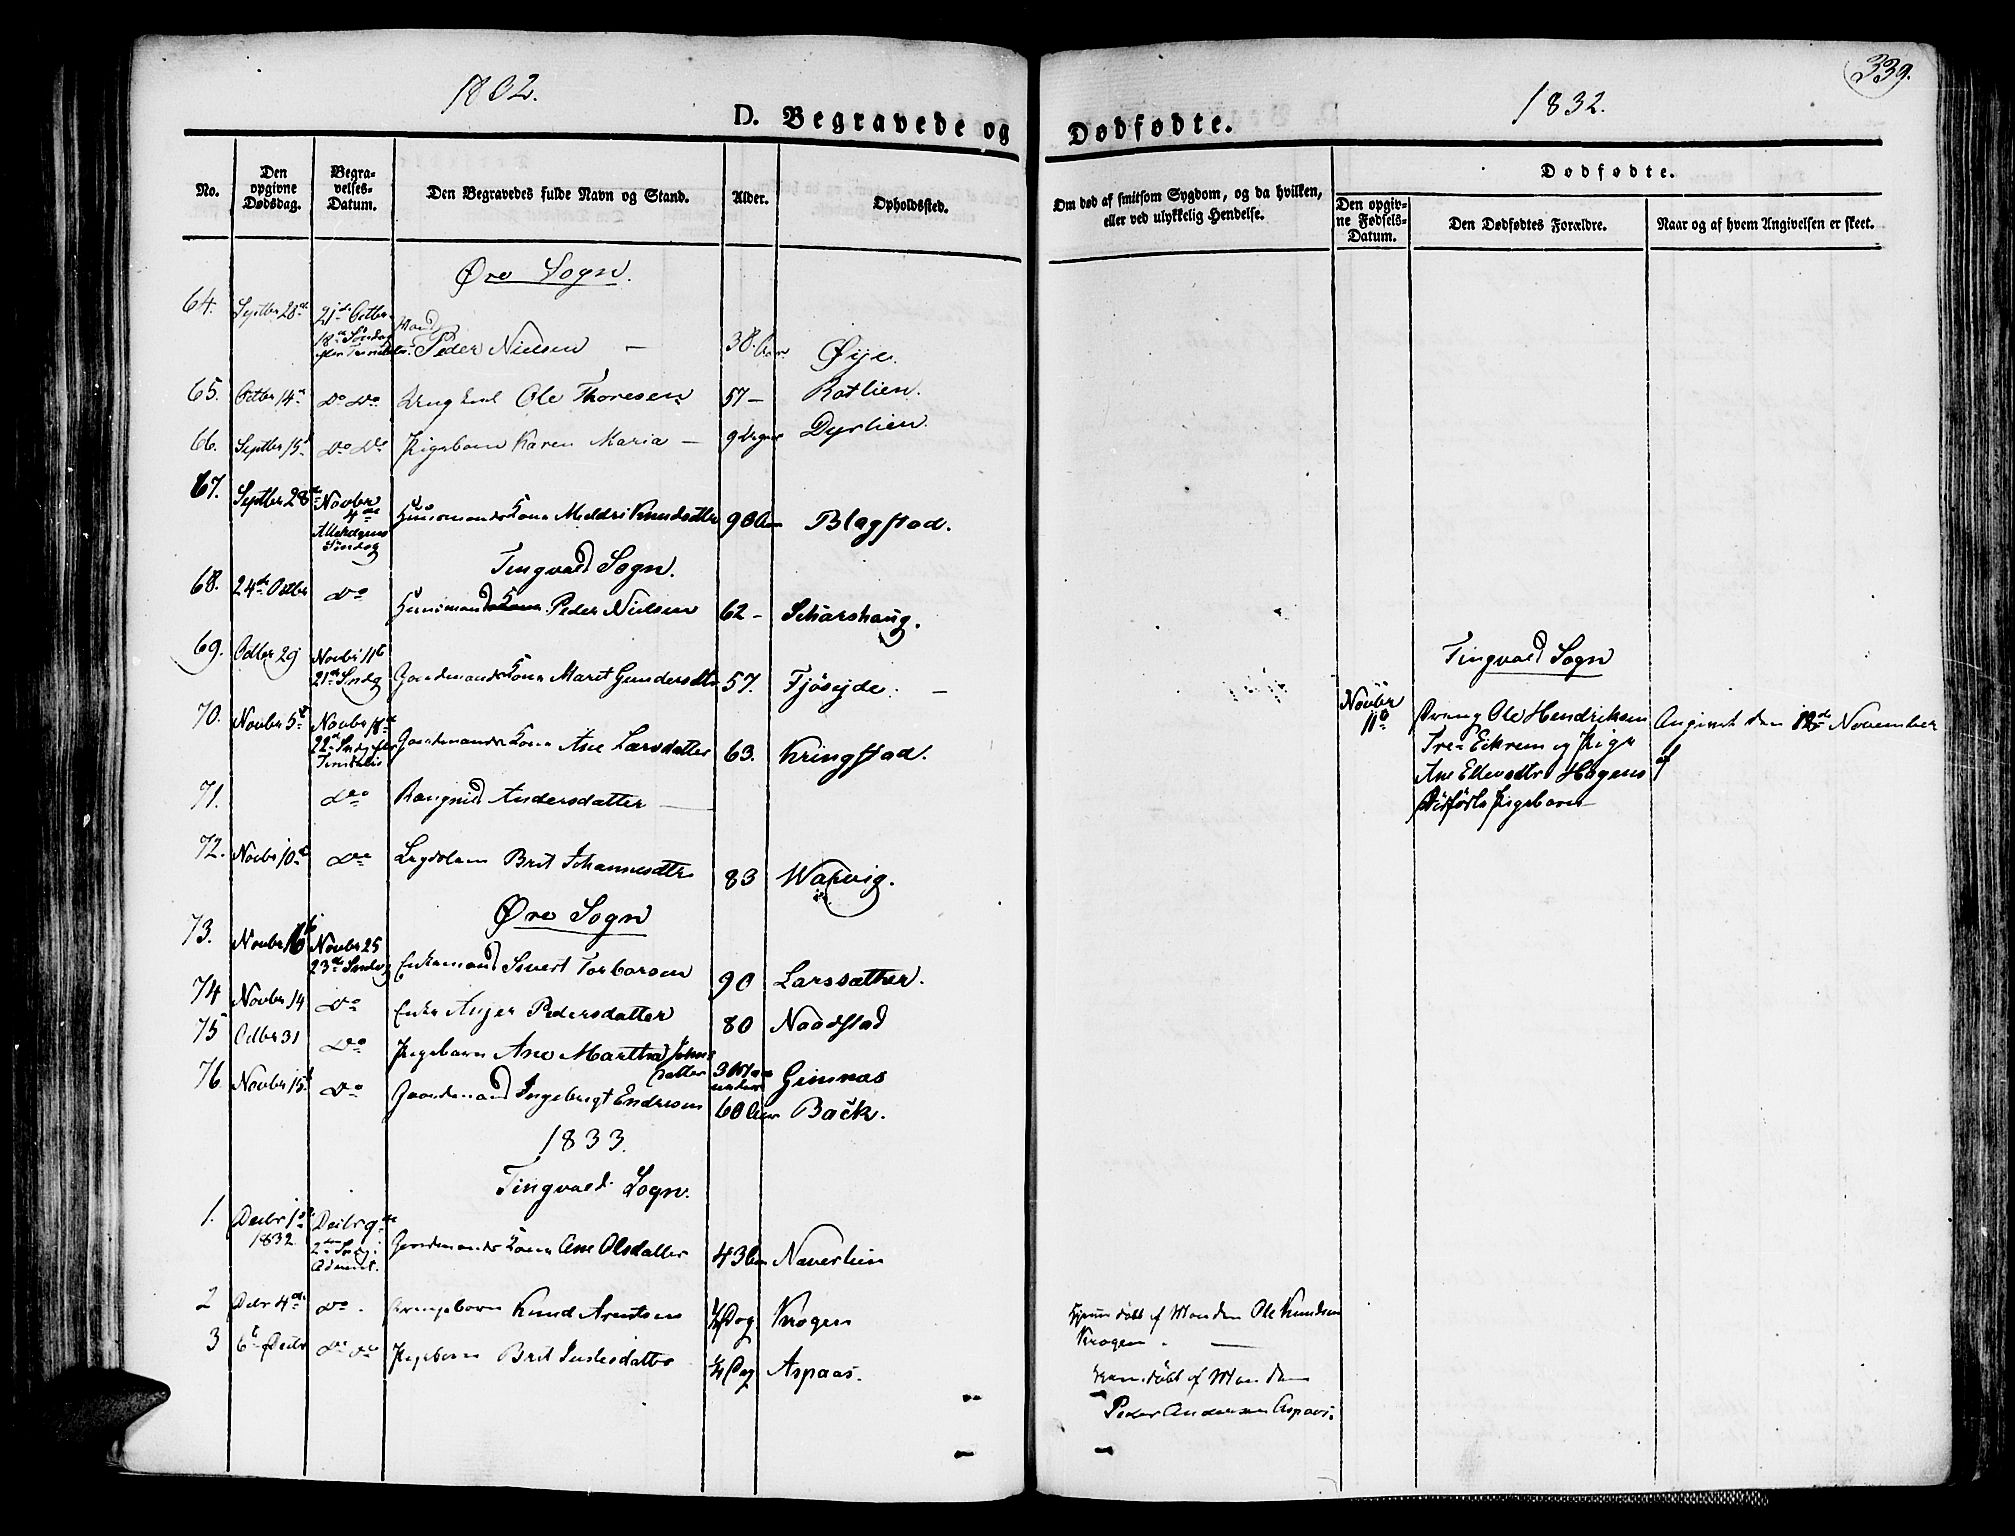 1832.
D. Begravede og
No.
Den opgivne Dødsdag.
Begravelses-Datum.
Den Begravedes fulde Navn og Stand.
Alder.
Opholdssted.
Øre Sogn.
64. Septbr 28de 21de Octbr
18de Søndag Mand Peder Nielsen — 38 Aar Øye.
65. Octbr 14de Do Do Ole Thoresen 57 — Rotlien.
66. Septbr 15de Do Do Pigebarn Karen Maria — 9 Dage Dyrlien.
67. Septbr 28de Novbr 4de Allehelgens Søndag Huusmands Kone Meldri Knudsdatter 90 Aar Blagstad.
Tingvold Sogn.
68. 24de Octbr Do Huusmand Peder Nielsen 62 — Scharshaug.
69. Octbr 29 Novbr 11te
21de Sndg Gaardmands Kone Marit Gundersdtr 57. Fjøseide. —
70. Novbr 5te Novbr 18de
22de Sndg efter Trinitatis Gaardmands Kone Ane Larsdatter 63. Kringstad.
71. Do Rangnild Andersdatter —
72. Novbr 10de Do Legdslem Brit Johannesdtr 83 Warvig.
Øre Sogn
73. Novbr 16te Novbr 25
23de Sndag Enkemand Sivert Torborsen 90 Larssæther.
74 Novbr 14 Do Enke Anger Pedersdatter 80 Naadstad
75 Octbr 31 Do Pigebarn Ane Martha Johnsdatter 3 Maaneder Gimnæs
76. Novbr 15de Do Gaardmand Ingebrigt Endresen 60 Aar Bach.
1833.
Tingvold Sogn.
1. Decbr 1ste 1832 Decbr 9de
2den Sndg i Advent. Gaardmands Kone Ane Olsdatter 43 Aar Naverlien
2 Decbr 4de Do. Drengebarn Knud Arntsen ½ Dag Krogen
3 6te Decbr Do Do Pigebarn Brit ½ Dag Aspaas.
339.
1832.
Dødfødte.
Om død af smitsom Sygdom, og da hvilken, eller ved ulykkelig Hendelse.
Dødfødte.
Den opgivne Fødsels-Datum.
Den Dødfødtes Forældre.
Naar og af hvem Angivelsen er skeet.
Tingvold Sogn
Novbr 11te
Dreng Ole Hendriksen
Eikrem og Pige
Ane Ellevsdtr Hagens
Dødfødte Pigebarn
Angivet den 18de November
af
Hjemmedøbt af Manden Ole Knudsen
Krogen. —
Hjemdøbt af Manden
Peder Andersen Aspaas.